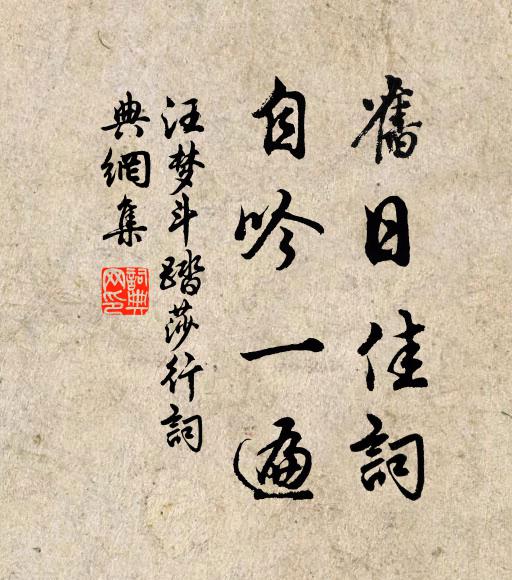 舊日佳詞
自吟一遍
汪梦斗踏莎行詞
典網集
詞典網印